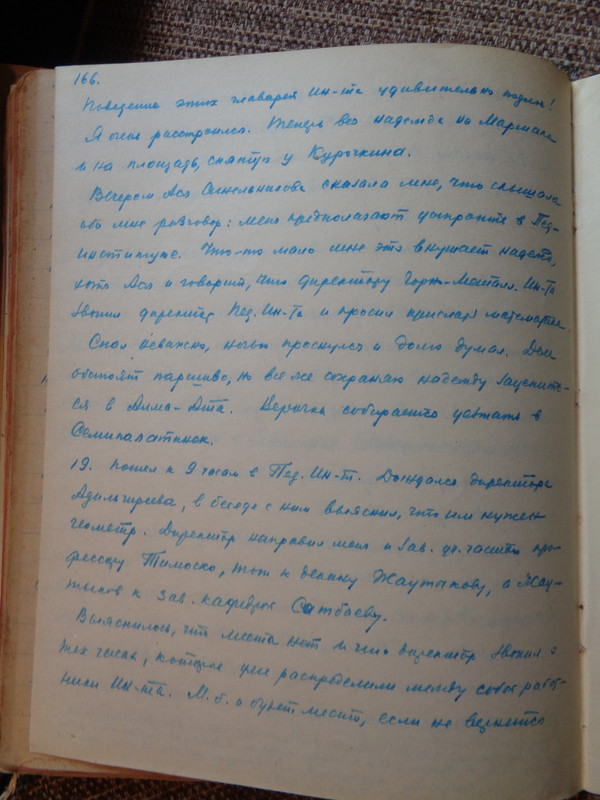 166.
Поведение этих главарей Ин-та удивительно подлое!
Я очень расстроился. Теперь вся надежда на Маршака
и на площадь, снятую у Курочкина.
Вечером Ася Синельникова сказала мне, что слышала
обо мне разговор: меня предполагают устроить в Пед-
институте. Что-то мало мне это внушает надежд,
хотя Ася и говорит, что директору Горн-Металл. Ин-та
звонил директор Пед. Ин-та и просил прислать математика.
Спал неважно, ночью проснулся и долго думал. Дела
обстоят паршиво, но все же сохраняю надежду зацепить-
ся в Алма-Ата. Верочка собирается уезжать в
Семипалатинск.
19. Пошел к 9 часам в Пед. Ин-т. Дождался директора
Адильгиреева, в беседе с ним выяснил, что им нужен
геометр. Директор направил меня к зав. уч. частью про-
фессору Тимоско, тот к декану Жаутыкову, а Жау-
тыков к зав. кафедрой Сатбаеву.
Выяснилось, что места нет и что директор звонил о
тех часах, которые уже распределили между собой работ-
ники Ин-та. М.б. и будет место, если не вернется